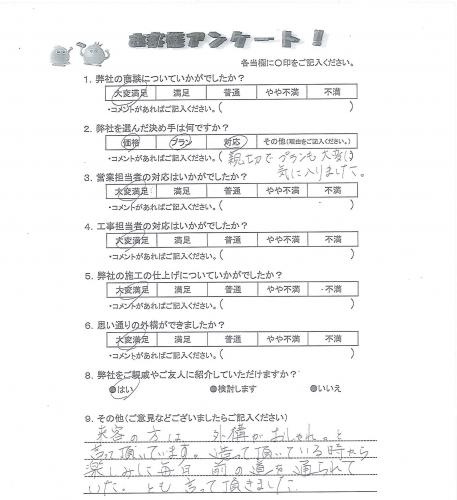 お客様アンケート！
各当欄に○印をご記入ください。
1. 弊社の商談についていかがでしたか？
大変満足 満足 普通 やや不満 不満
・コメントがあればご記入ください。( )
2. 弊社を選んだ決め手は何ですか？
価格 プラン 対応 その他(理由をご記入ください。)
・コメントがあればご記入ください。( 親切でプランも大変
気に入りました。 )
3. 営業担当者の対応はいかがでしたか？
大変満足 満足 普通 やや不満 不満
・コメントがあればご記入ください。( )
4. 工事担当者の対応はいかがでしたか？
大変満足 満足 普通 やや不満 不満
・コメントがあればご記入ください。( )
5. 弊社の施工の仕上げについていかがでしたか？
大変満足 満足 普通 不満 不満
・コメントがあればご記入ください。( )
6. 思い通りの外構ができましたか？
大変満足 満足 普通 やや不満 不満
・コメントがあればご記入ください。( )
8. 弊社をご親戚やご友人に紹介していただけますか？
●はい ●検討します ●いいえ
9. その他(ご意見などございましたらご記入ください)
来客の方は 外構がおしゃれ。と
言って頂いています。造って頂いている時から
楽しみに毎日 前の道を通られて
いた。とも言って頂きました。